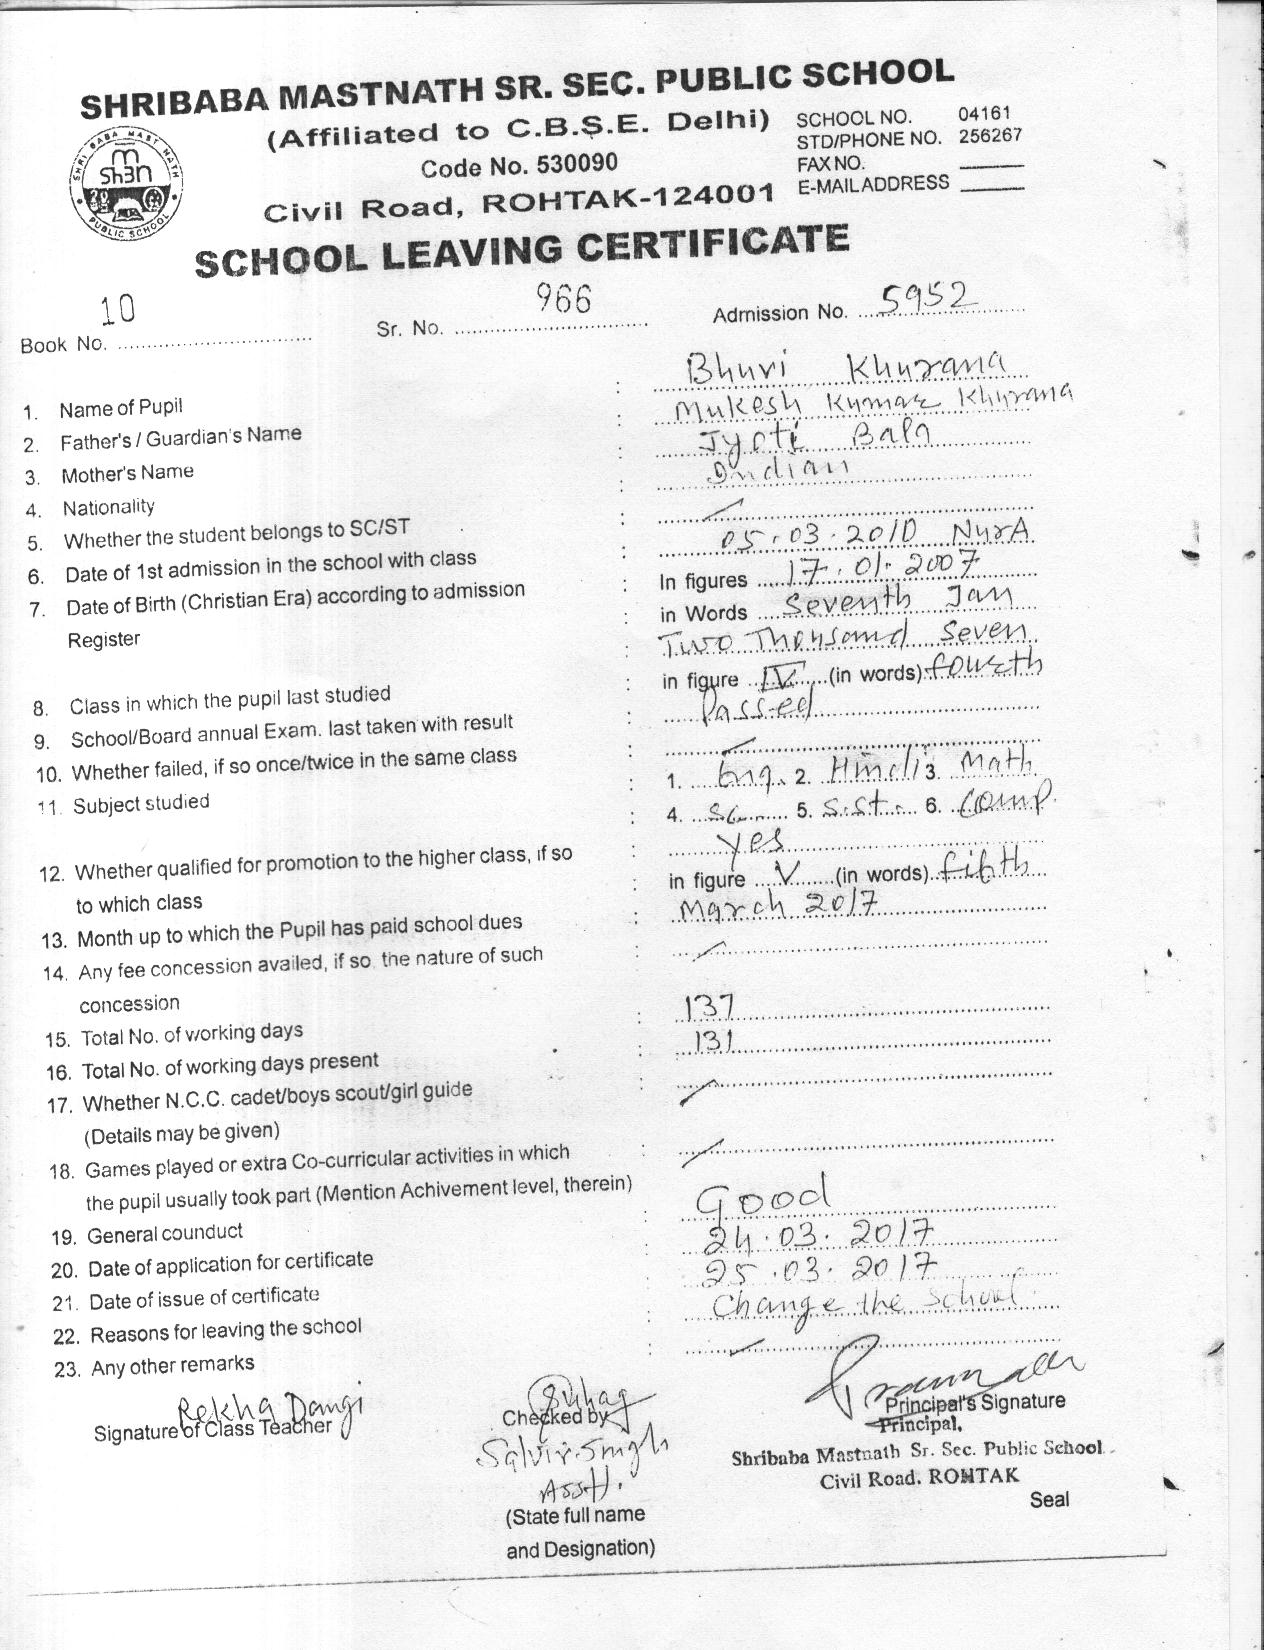 SHRIBABA MASTNATH SR. SEC. PUBLIC SCHOOL
(Affiliated to C.B.S.E. Delhi)
SCHOOL NO. 04161
STD/PHONE NO. 256267
Code No. 530090
FAX NO.
E-MAIL ADDRESS
Civil Road, ROHTAK-124001
SHRI BABA MAST NATH
Sh3n
PUBLIC SCHOOL
SCHOOL LEAVING CERTIFICATE
Book No. 10 Sr. No. 966 Admission No. 5952
1. Name of Pupil : Bhuvi Khurana
2. Father's / Guardian's Name : Mukesh Kumar Khurana
3. Mother's Name : Jyoti Bala
4. Nationality : Indian
5. Whether the student belongs to SC/ST :
6. Date of 1st admission in the school with class : 05.03.2010 NurA
7. Date of Birth (Christian Era) according to admission : In figures 17.01.2007
Register in Words Seventh Jan
Two Thousand Seven
8. Class in which the pupil last studied : in figure IV (in words) fourth
9. School/Board annual Exam. last taken with result : Passed
10. Whether failed, if so once/twice in the same class :
11. Subject studied : 1. Eng. 2. Hindi 3. Math
4. Sc. 5. S.St. 6. Comp.
12. Whether qualified for promotion to the higher class, if so : Yes
to which class : in figure V (in words) fifth
13. Month up to which the Pupil has paid school dues : March 2017
14. Any fee concession availed, if so the nature of such :
concession
15. Total No. of working days : 137
16. Total No. of working days present : 131
17. Whether N.C.C. cadet/boys scout/girl guide :
(Details may be given)
18. Games played or extra Co-curricular activities in which :
the pupil usually took part (Mention Achivement level, therein)
19. General counduct : Good
20. Date of application for certificate : 24.03.2017
21. Date of issue of certificate : 25.03.2017
22. Reasons for leaving the school : Change the School
23. Any other remarks :
Rekha Dangi
Signature of Class Teacher
Checked by
Satvir Singh
Asstt.
(State full name
and Designation)
Principal's Signature
Principal,
Shribaba Mastnath Sr. Sec. Public School
Civil Road, ROHTAK
Seal